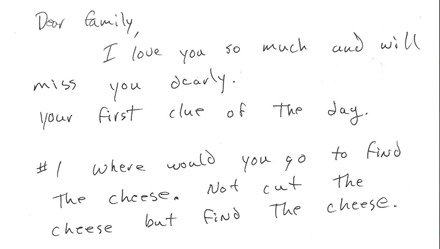 Dear family,
I love you so much and will
miss you dearly.
Your first clue of the day.
#1 Where would you go to find
the cheese. Not cut the
cheese but find the cheese.